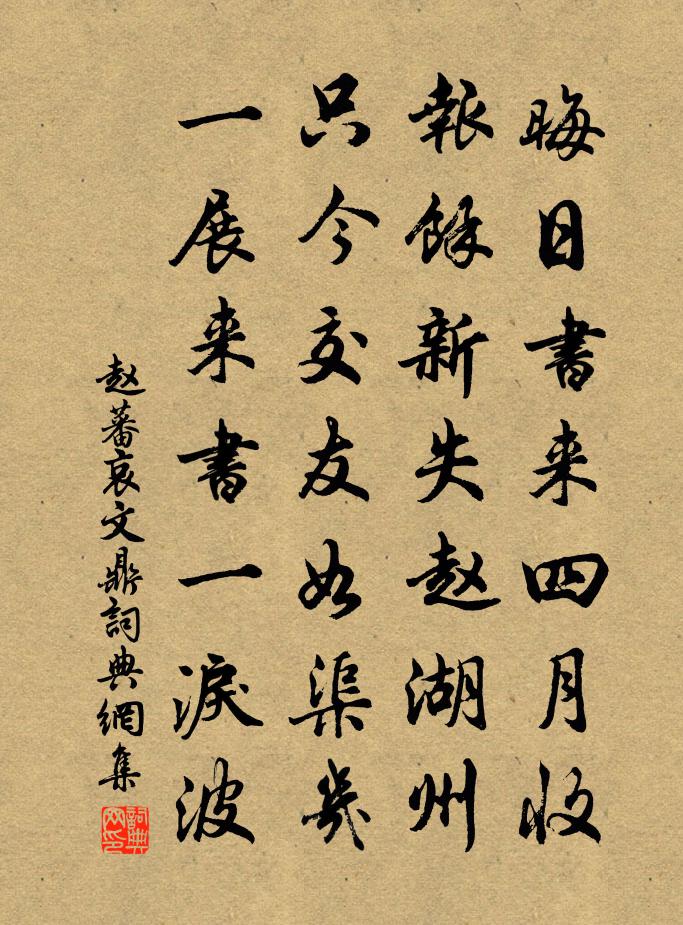 晦日書来四月收
報餘新失赵湖州
只今交友如渠幾
一展来書一淚波
赵蕃哀文鼎詞典網集
詞典网印